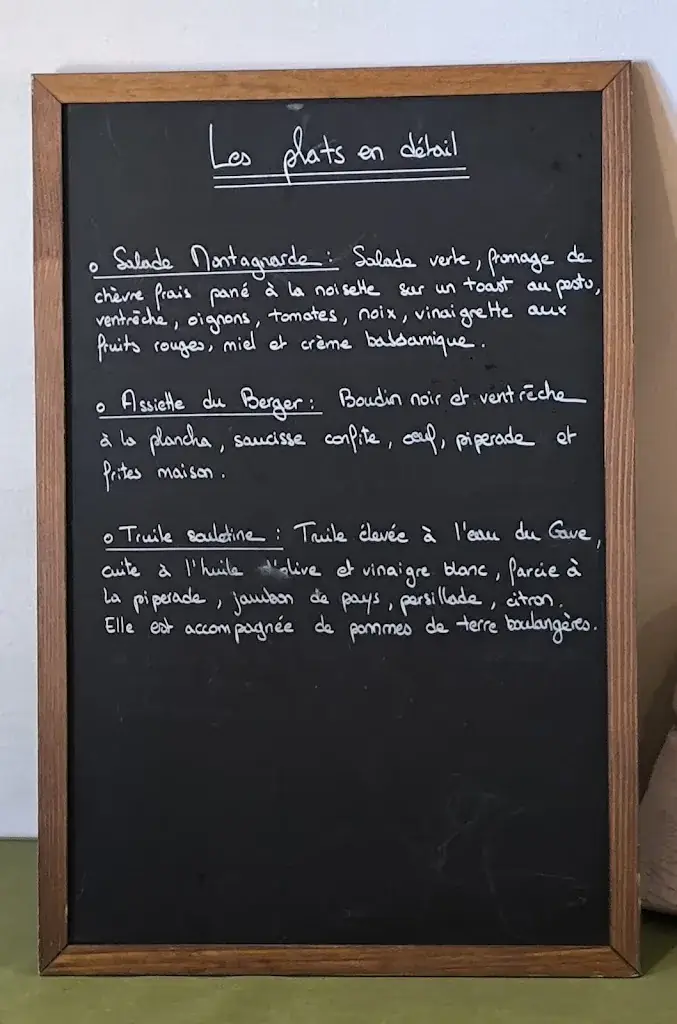 Les plats en détail
o Salade Montagnarde : Salade verte, fromage de
chèvre frais pané à la noisette sur un toast au pesto,
ventrêche, oignons, tomates, noix, vinaigrette aux
fruits rouges, miel et crème balsamique.
o Assiette du Berger : Boudin noir et ventrêche
à la plancha, saucisse confite, œuf, piperade et
frites maison.
o Truite souletine : Truite élevée à l'eau du Gave,
cuite à l'huile d'olive et vinaigre blanc, farcie à
la piperade, jambon de pays, persillade, citron.
Elle est accompagnée de pommes de terre boulangères.